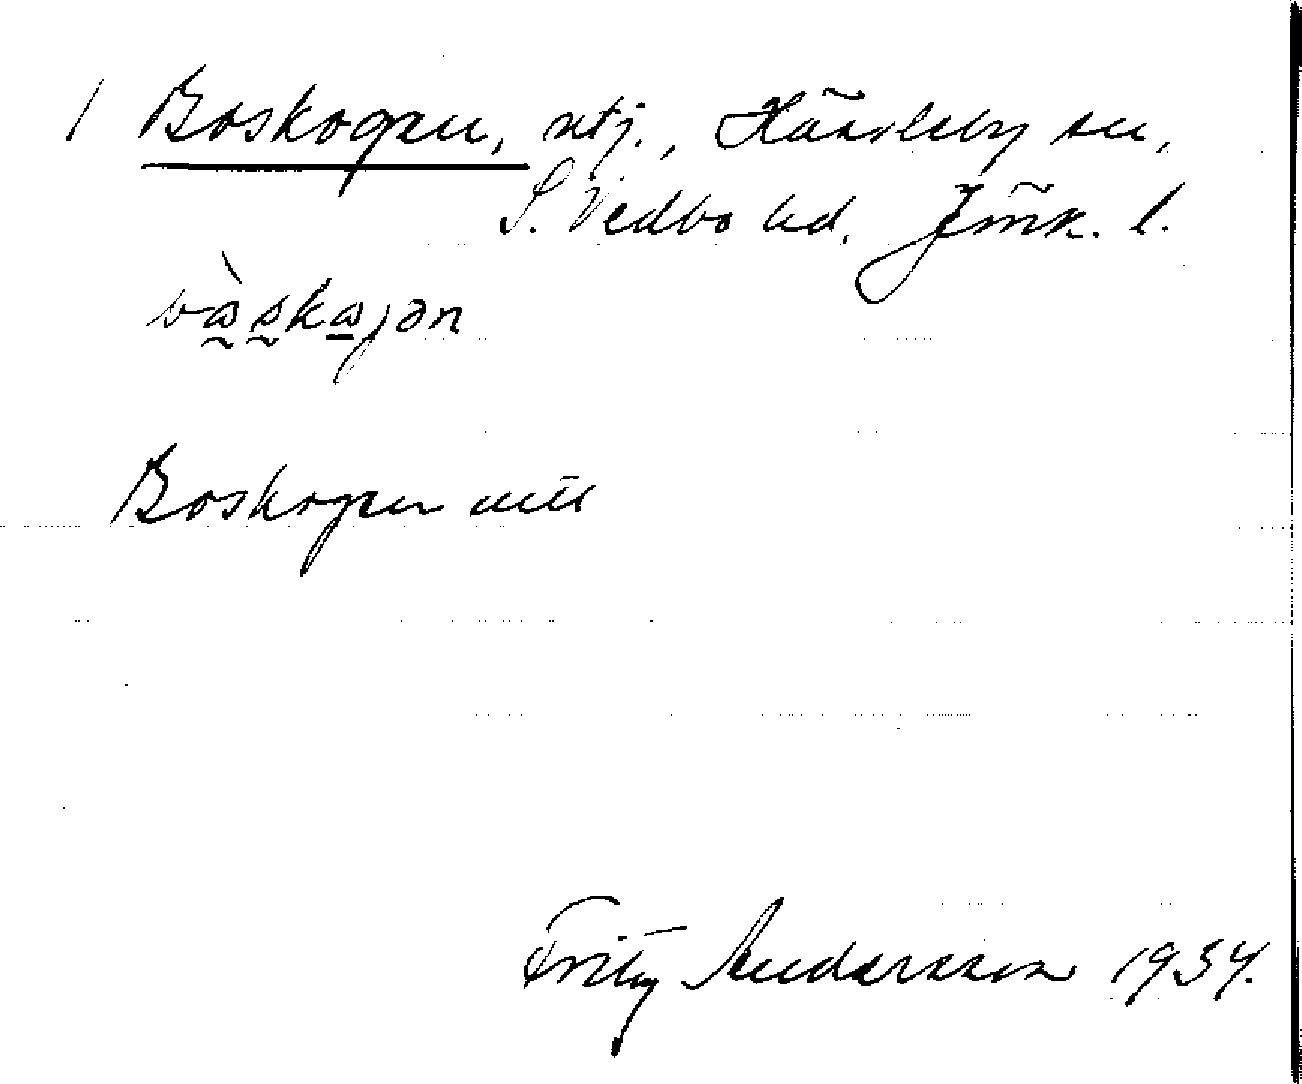 1 Boskogen, utj., Hässleby sn,
S. Vedbo hd. Jönk. l.
Boskogen
Fritz Andersson 1934.